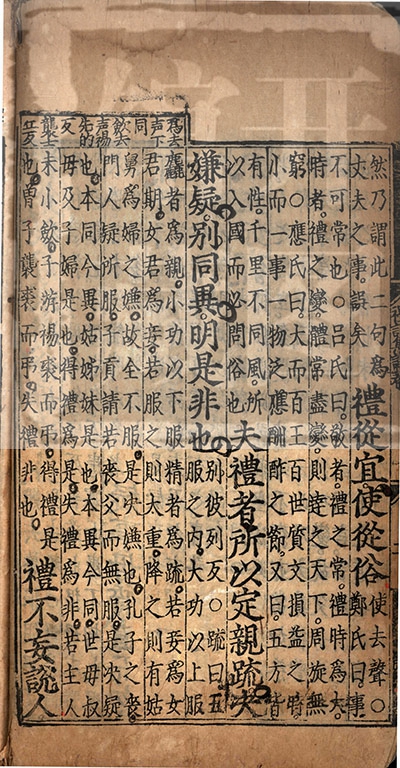 然乃謂此二句爲
丈夫之事誤矣
禮從宜使從俗
使去聲○
鄭氏曰事
不可常也○呂氏曰敬者禮之常禮時爲大
時者禮之變體常盡變則達之天下周旋無
窮○應氏曰大而百王百世質文損益之時
小而一事一物泛應酬酢之節又曰五方皆
有性千里不同風所
以入國而必問俗也
夫禮者所以定親疏決
嫌疑別同異明是非也
別彼列反○疏曰五
服之内大功以上服
麤者爲親小功以下服精者爲疏若妾爲女
君期女君爲妾若服之則大重降之則有姑
舅爲婦之嫌故全不服是決嫌也孔子之喪
門人疑所服子貢請若喪父而無服是決疑
也本同今異姑姊妹是也本異今同世母叔
母及子婦是也得禮爲是失禮爲非若主人
未小斂子游裼裘而弔得禮是
也曾子襲裘而弔失禮非也
禮不妄說人
爲去
声下
同
歛去
声裼
先的
反
襲士
立反